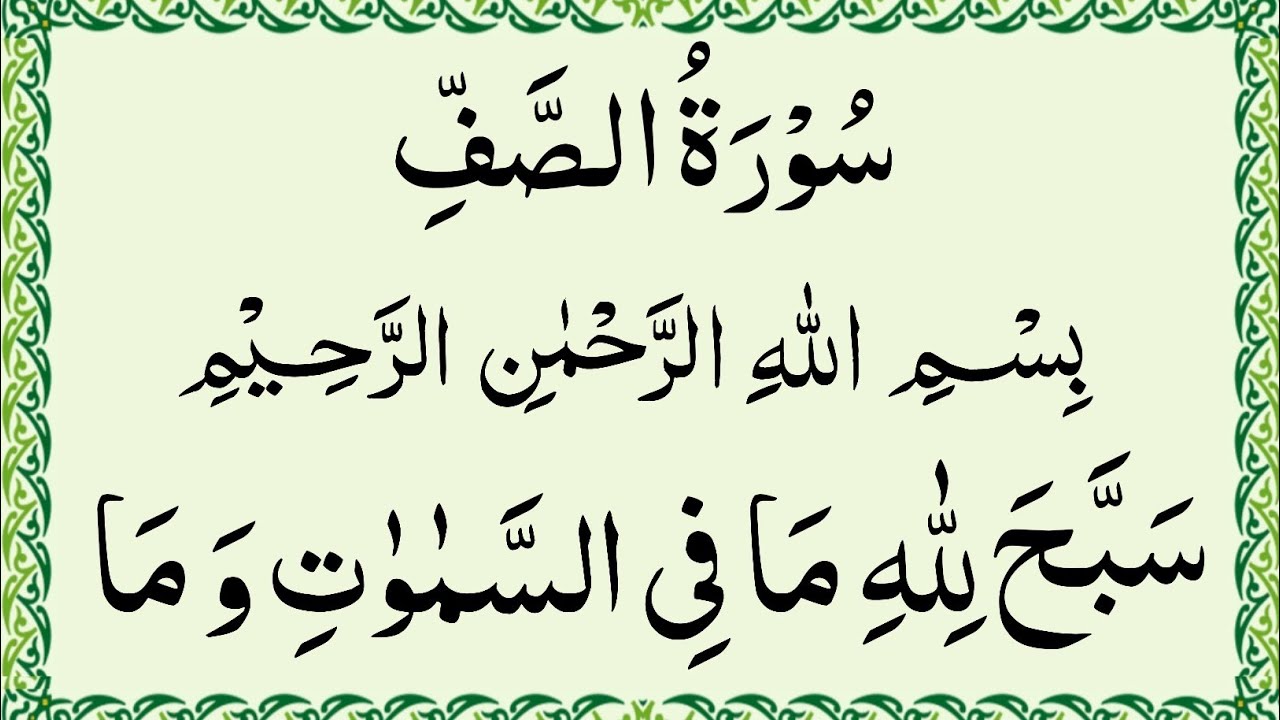 سُوْرَةُ الصَّفِّ
بِسْمِ اللهِ الرَّحْمٰنِ الرَّحِيْمِ
سَبَّحَ لِلّٰهِ مَا فِي السَّمٰوٰتِ وَ مَا